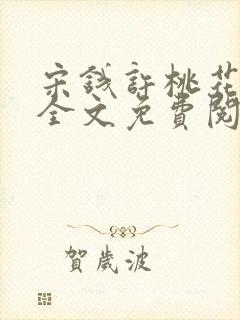 宋錢許桃花
全文免費閱
賀歲波